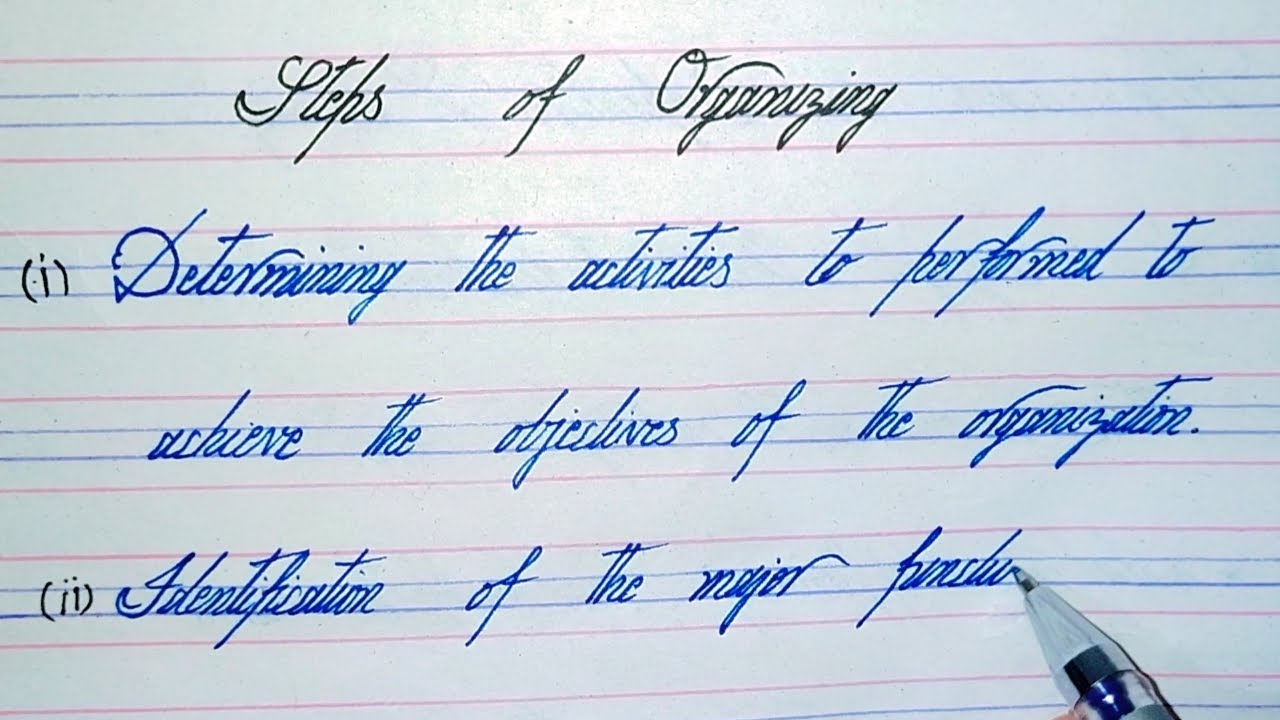 Steps of Organizing
(i) Determining the activities to performed to
achieve the objectives of the organization.
(ii) Identification of the major